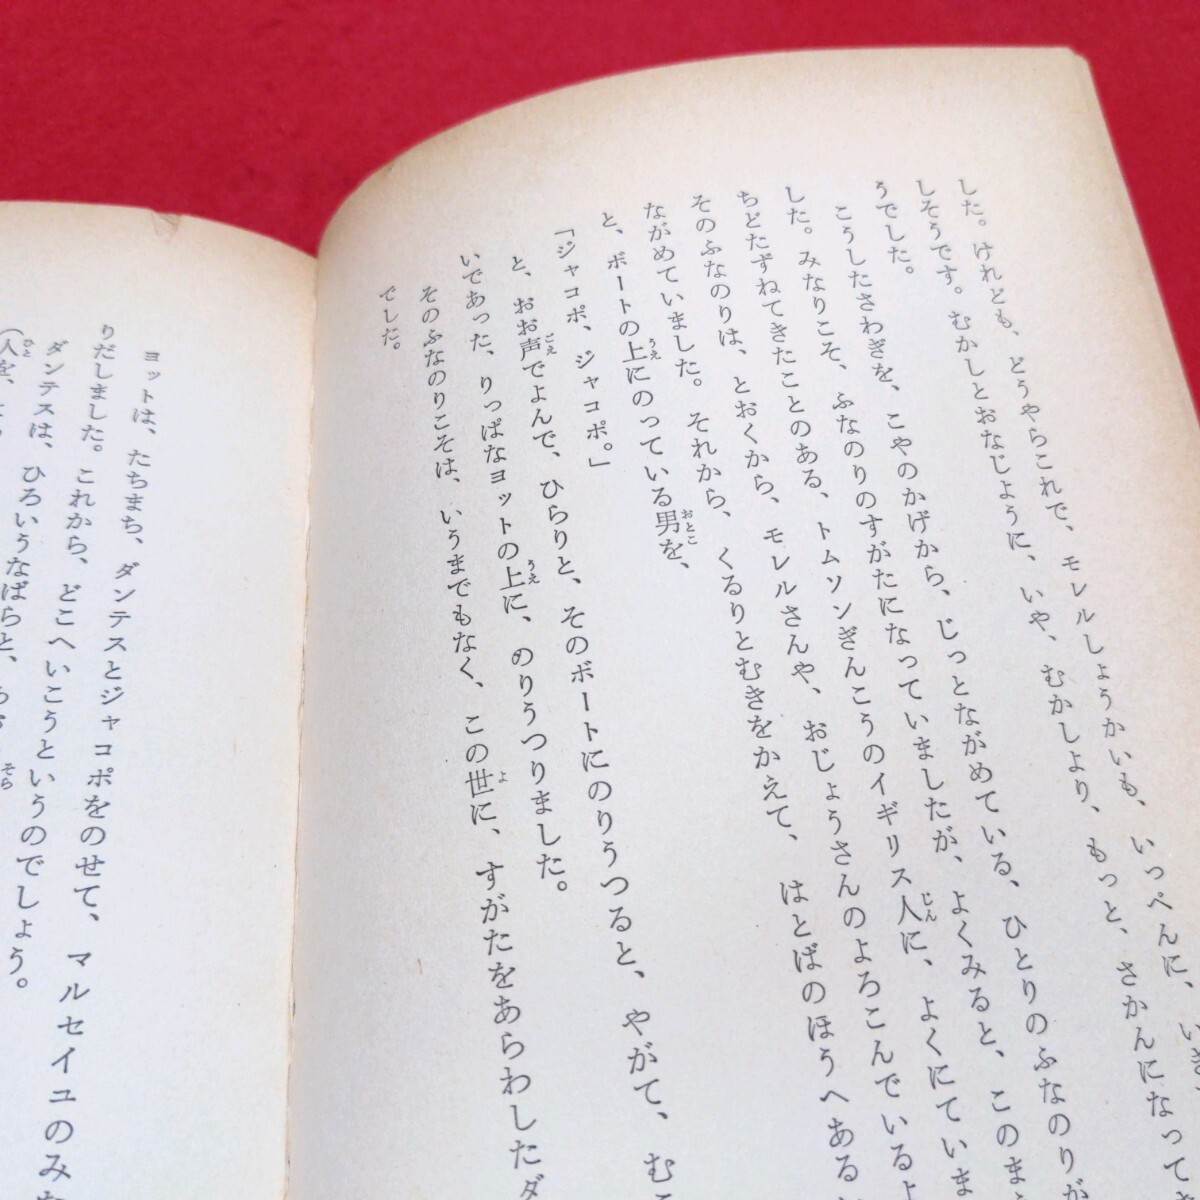 した。けれども、どうやらこれで、モレルしょうかいも、いっぺんに、いき
しそうです。むかしとおなじように、いや、むかしより、もっと、さかんになって
うでした。
こうしたさわぎを、こやのかげから、じっとながめている、ひとりのふなのりが
した。みなりこそ、ふなのりのすがたになっていましたが、よくみると、このま
ちどたずねてきたことのある、トムソンぎんこうのイギリス人に、よくにていま
そのふなのりは、とおくから、モレルさんや、おじょうさんのよろこんでいるよ
ながめていました。それから、くるりとむきをかえて、はとばのほうへある
と、ボートの上にのっている男を、
「ジャコポ、ジャコポ。」
と、おお声でよんで、ひらりと、そのボートにのりうつると、やがて、むこ
いであった、りっぱなヨットの上に、のりうつりました。
そのふなのりこそは、いうまでもなく、この世に、すがたをあらわしたダ
でした。
ヨットは、たちまち、ダンテスとジャコポをのせて、マルセイユのみな
りだしました。これから、どこへいこうというのでしょう。
ダンテスは、ひろいうなばらと、
（人を、